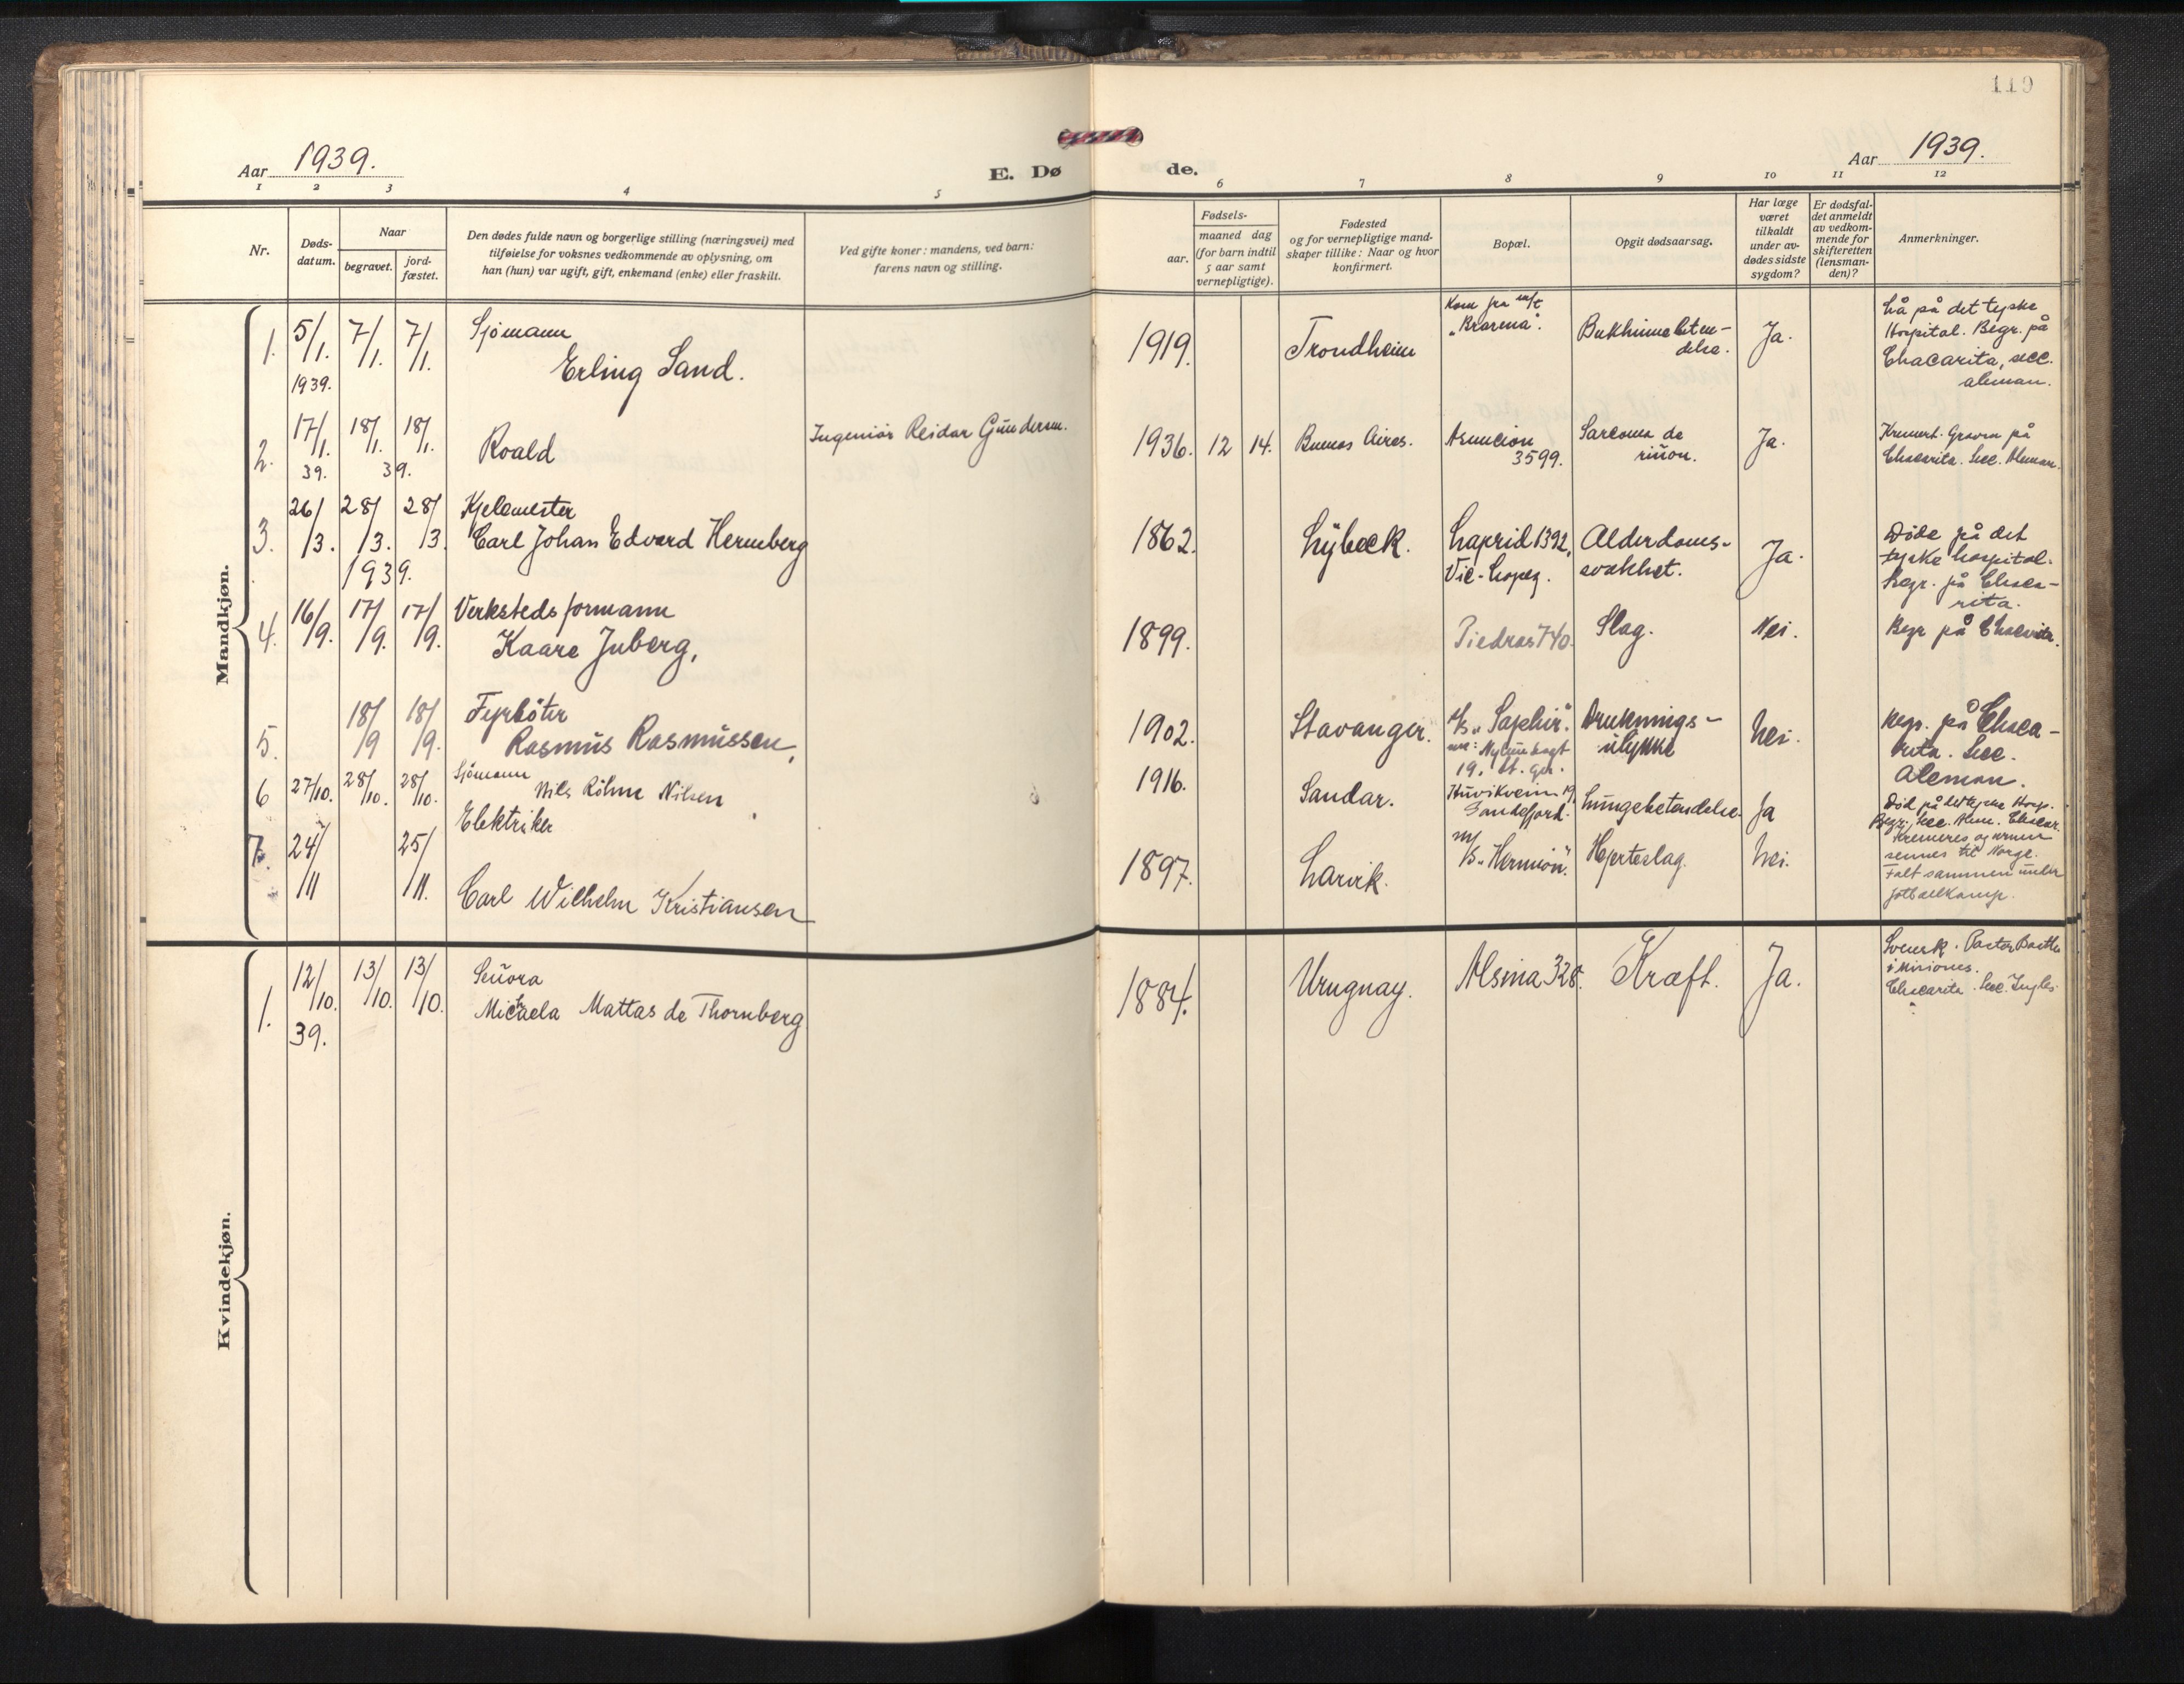 119
Aar 1939.
E. Dø
de.
Aar 1939.
1 2 3 4 5 6 7 8 9 10 11 12
Nr.
Døds-
datum.
Naar
begravet.
jord-
fæstet.
Den dødes fulde navn og borgerlige stilling (næringsvei) med
tilføielse for voksnes vedkommende av oplysning, om
han (hun) var ugift, gift, enkemand (enke) eller fraskilt.
Ved gifte koner: mandens, ved barn:
farens navn og stilling.
Fødsels-
aar.
maaned dag
(for barn indtil
5 aar samt
vernepligtige).
Fødested
og for vernepligtige mand-
skaper tillike: Naar og hvor
konfirmert.
Bopæl.
Opgit dødsaarsag.
Har læge
været
tilkaldt
under av-
dødes sidste
sygdom?
Er dødsfal-
det anmeldt
av vedkom-
mende for
skifteretten
(lensman-
den)?
Anmerkninger.
Mandkjøn.
1. 5/1. 1939. 7/1. 7/1.
Sjømann
Erling Sand.
1919. Trondheim
Kom fra m/t
"Brarena".
Bukhinnebeten-
delse.
Ja.
Lå på det tyske
Hospital. Begr. på
Chacarita, secc.
aleman.
2. 17/1. 39. 18/1. 18/1. 39.
Roald
Ingeniør Reidar Gundersen.
1936. 12 14. Buenos Aires.
Asuncion
3599.
Sarcoma de
riñon.
Ja.
Kremert. Graven på
Chacarita. Secc. Aleman.
3. 26/3. 28/3. 28/3. 1939.
Kjelemester
Carl Johan Edvard Hermberg
1862. Lybeck.
Laprid 1392,
Vic-Lopez.
Alderdoms-
svakhet.
Ja.
Døde på det
tyske hospital.
Begr. på Chaca-
rita.
4. 16/9. 17/9. 17/9.
Verkstedsformann
Kaare Juberg,
1899.
Piedras 740.
Slag.
Nei.
Begr på Chacarita.
5. 18/9 18/9.
Fyrbøter
Rasmus Rasmussen,
1902. Stavanger.
s/s "Saphir".
19.
Druknings-
ulykke
Nei.
Begr. på Chaca-
rita. Secc.
Aleman.
6 27/10. 28/10. 28/10.
Sjømann
Nils Röhne Nilsen
1916. Sandar.
Huvikveien 19,
Sandefjord.
Lungebetendelse.
Ja
Død på det tyske Hosp.
Begr. Secc. Alem. Chacar.
7. 24/11 25/11.
Elektriker
Carl Wilhelm Kristiansen
1897. Larvik.
m/s "Hermion".
Hjerteslag.
Nei.
Kremeres og urnen
sennes til Norge.
Falt sammen under
fotballkamp.
Kvindekjøn.
1. 12/10. 39. 13/10. 13/10.
Señora
Michaela Mattas de Thornberg
1884. Uruguay.
Alsina 328.
Kræft.
Ja.
Svensk. Pastor
i Misiones.
Chacarita. Secc. Ingles.